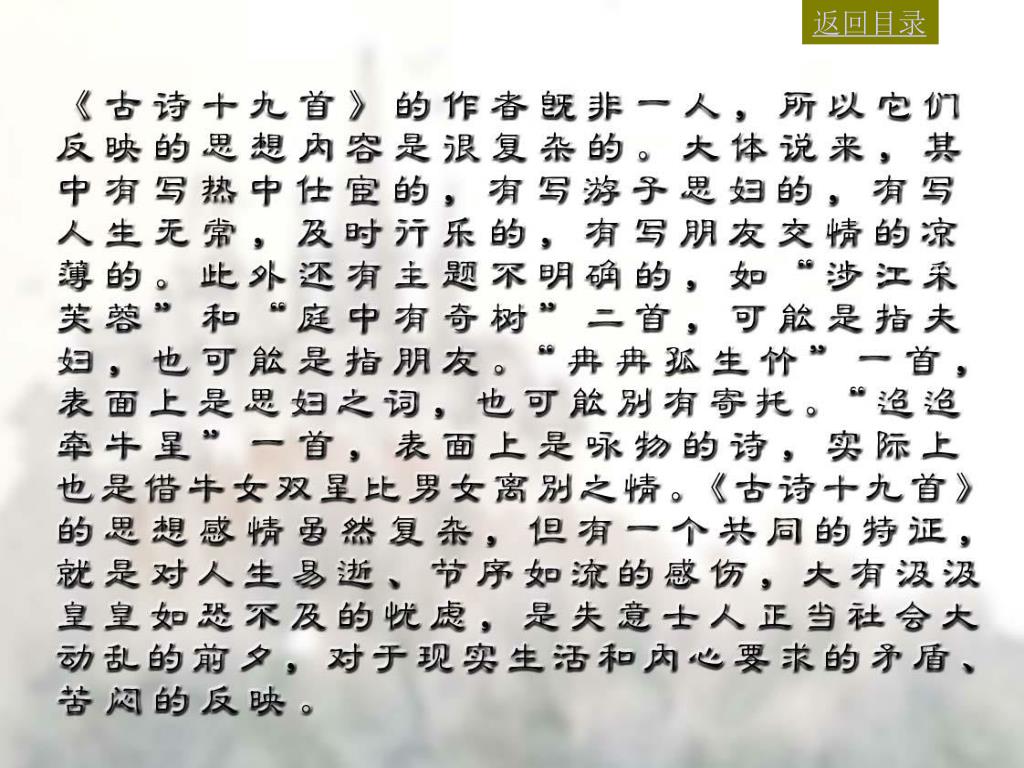 返回目录
《古诗十九首》的作者既非一人，所以它们
反映的思想内容是很复杂的。大体说来，其
中有写热中仕宦的，有写游子思妇的，有写
人生无常，及时行乐的，有写朋友交情的凉
薄的。此外还有主题不明确的，如“涉江采
芙蓉”和“庭中有奇树”二首，可能是指夫
妇，也可能是指朋友。“冉冉孤生竹”一首，
表面上是思妇之词，也可能别有寄托。“迢迢
牵牛星”一首，表面上是咏物的诗，实际上
也是借牛女双星比男女离别之情。《古诗十九首》
的思想感情虽然复杂，但有一个共同的特征，
就是对人生易逝、节序如流的感伤，大有汲汲
皇皇如恐不及的忧虑，是失意士人正当社会大
动乱的前夕，对于现实生活和内心要求的矛盾、
苦闷的反映。